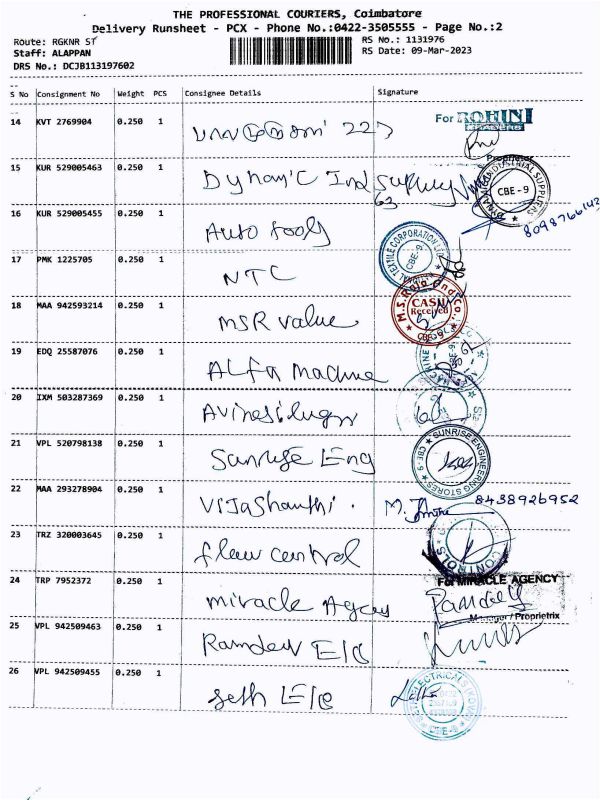 THE PROFESSIONAL COURIERS, Coimbatore
Delivery Runsheet - PCX - Phone No.:0422-3505555 - Page No.:2
Route: RGKNR ST
RS No.: 1131976
Staff: ALAPPAN
RS Date: 09-Mar-2023
DRS No.: DCJB113197602
S No Consignment No Weight PCS Consignee Details Signature
14 KVT 2769904 0.250 1 227 For ROHINI
Proprietor
15 KUR 529005463 0.250 1 Dynamic Ind Supply
63
INDUSTRIAL SUPPLIERS CBE - 9
8098766142
16 KUR 529005455 0.250 1 Auto tools
17 PMK 1225705 0.250 1 NTC TEXTILE CORPORATION LTD CBE-9
18 MAA 942593214 0.250 1 MSR value M.S. Raja and Co., CASH Received CBE-9
19 EDQ 25587076 0.250 1 Alfa Machine
20 IXM 503287369 0.250 1
21 VPL 520798138 0.250 1 Sunrise Eng SUNRISE ENGINEERING STORES CBE-9
22 MAA 293278904 0.250 1 Vijashanthi. 8438926952
23 TRZ 320003645 0.250 1 flow control CONTROLS
24 TRP 7952372 0.250 1 miracle Agency For MIRACLE AGENCY
Manager / Proprietrix
25 VPL 942509463 0.250 1 Ramdev E/c
26 VPL 942509455 0.250 1 Seth E/c ELECTRICALS CBE-9